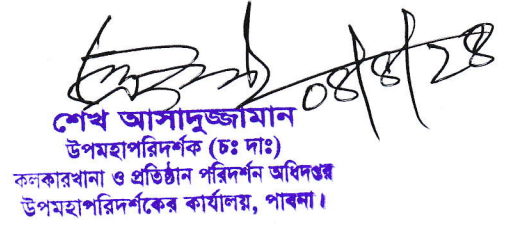 ০৪/৪/২৪
শেখ আসাদুজ্জামান
উপমহাপরিদর্শক (চঃ দাঃ)
কলকারখানা ও প্রতিষ্ঠান পরিদর্শন অধিদপ্তর
উপমহাপরিদর্শকের কার্যালয়, পাবনা।